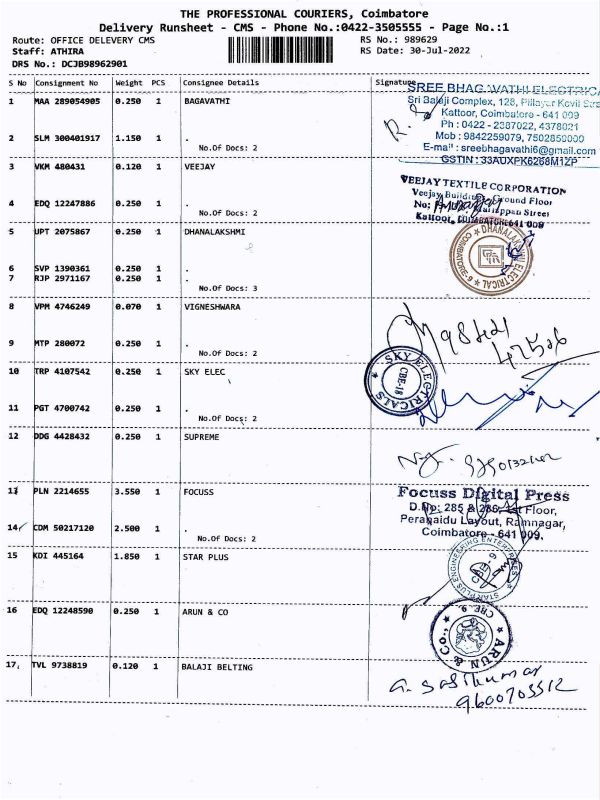 THE PROFESSIONAL COURIERS, Coimbatore
Delivery Runsheet - CMS - Phone No.:0422-3505555 - Page No.:1
Route: OFFICE DELEVERY CMS RS No.: 989629
Staff: ATHIRA RS Date: 30-Jul-2022
DRS No.: DCJB98962901
S No Consignment No Weight PCS Consignee Details Signature
1 MAA 289054905 0.250 1 BAGAVATHI
SREE BHAGAVATHI ELECTRICA
Sri Balaji Complex, 128, Pillayar Kovil Stre
Kattoor, Coimbatore - 641 009
Ph : 0422 - 2387022, 4378021
Mob : 9842259079, 7502859000
E-mail : sreebhagavathi6@gmail.com
GSTIN : 33AUXPK6268M1ZP
2 SLM 300401917 1.150 1 .
No.Of Docs: 2
3 VKM 480431 0.120 1 VEEJAY
VEEJAY TEXTILE CORPORATION
Veejay Building, Ground Floor
No: Mariappan Street
Kattoor, COIMBATORE-641 009
4 EDQ 12247886 0.250 1 .
No.Of Docs: 2
5 UPT 2075867 0.250 1 DHANALAKSHMI
DHANALAKSHMI ELECTRICAL
COIMBATORE-9
6 SVP 1390361 0.250 1 .
7 RJP 2971167 0.250 1 .
No.Of Docs: 3
8 VPM 4746249 0.070 1 VIGNESHWARA
98421
47526
9 MTP 280072 0.250 1 .
No.Of Docs: 2
10 TRP 4107542 0.250 1 SKY ELEC
SKY ELECTRICALS
CBE-18
11 PGT 4700742 0.250 1 .
No.Of Docs: 2
12 DDG 4428432 0.250 1 SUPREME
13 PLN 2214655 3.550 1 FOCUSS
Focuss Digital Press
D.No: 285 & 286, 1st Floor,
Peranaidu Layout, Ramnagar,
Coimbatore - 641 009.
14 CDM 50217120 2.500 1 .
No.Of Docs: 2
15 KDI 445164 1.850 1 STAR PLUS
STARPLUS ENGINEERING ENTERPRISES
16 EDQ 12248590 0.250 1 ARUN & CO
ARUN & Co.,
CBE 9.
17. TVL 9738819 0.120 1 BALAJI BELTING
G. Sasikumar
9600703512